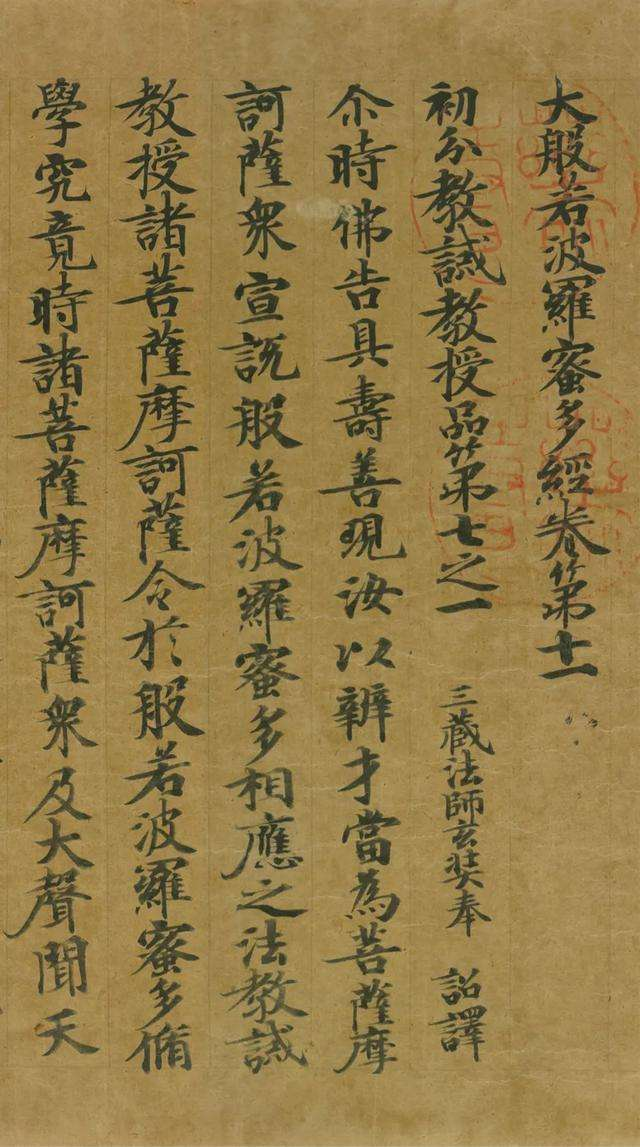 大般若波羅蜜多經卷第十一
初分教誡教授品第七之一 三藏法師玄奘奉 詔譯
尒時佛告具壽善現汝以辯才當為菩薩摩
訶薩衆宣說般若波羅蜜多相應之法教誡
教授諸菩薩摩訶薩令於般若波羅蜜多脩
學究竟時諸菩薩摩訶薩衆及大聲聞天